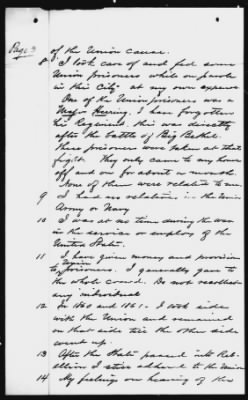 Page 3
of the Union cause.
8 I took care of and fed some
Union prisoners while on parole
in this City at my own expense
One of the Union prisoners was a
Major I have forgotten
his Regiment, this was directly
after the battle of Big Bethel.
These prisoners were taken at that
fight. They only came to my house
off and on for about a month.
None of them were related to me.
9 I had no relatives in the Union
Army or Navy
10 I was at no time during the war
in the service or employ of the
United States.
11 I have given money and provision
to Union prisoners. I generally gave to
the whole crowd. Do not recollect
any individual
12 In 1860 and 1861. I took sides
with the Union and remained
on that side till the other side
went up.
13 After the State passed into Reb-
ellion I still adhered to the Union
14 My feelings on hearing of the